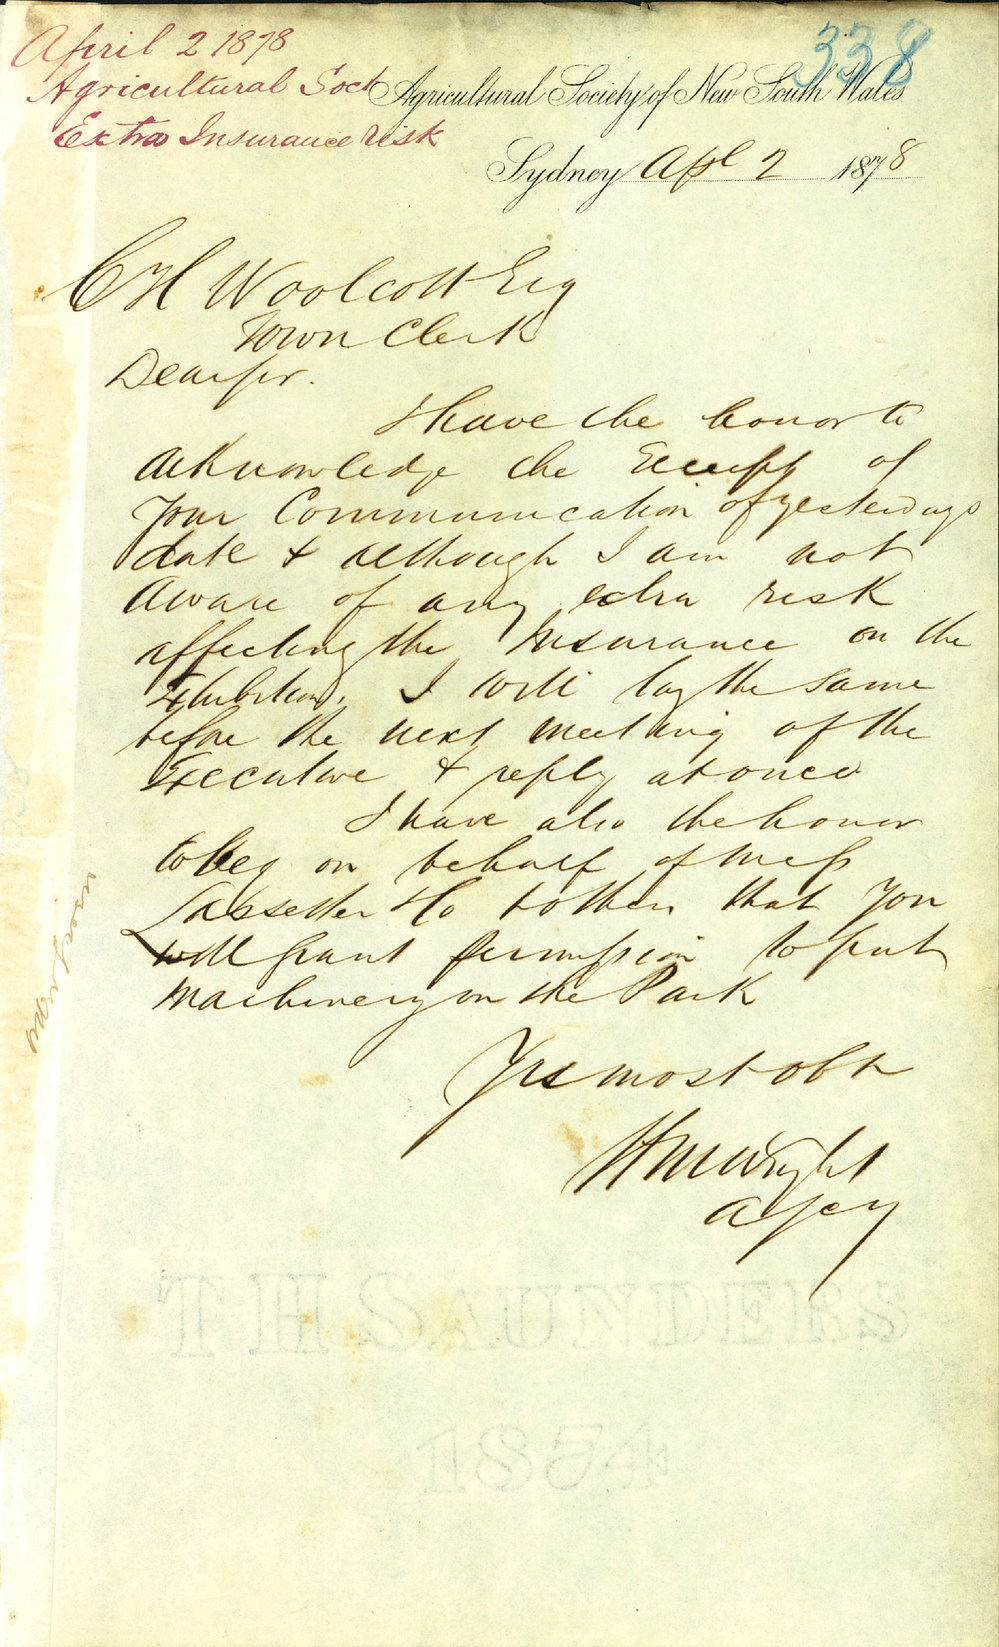 April 2 1878
Agricultural Soct
Extra Insurance risk
338
Agricultural Society of New South Wales
Sydney Apl 2 1878
C H Woolcott Esq
Town Clerk
Dear Sir.
I have the honor to
acknowledge the Receipt of
your Communication of yesterdays
date & although I am not
aware of any extra risk
affecting the Insurance on the
Exhibition. I will lay the same
before the next meeting of the
Executive & reply at once
I have also the honor
to beg on behalf of Mess
Lassetter & Co & others that you
will grant permission to put
Machinery on the Park
Yrs most obt
H M Wright
A Secy
T H SAUNDERS
1874